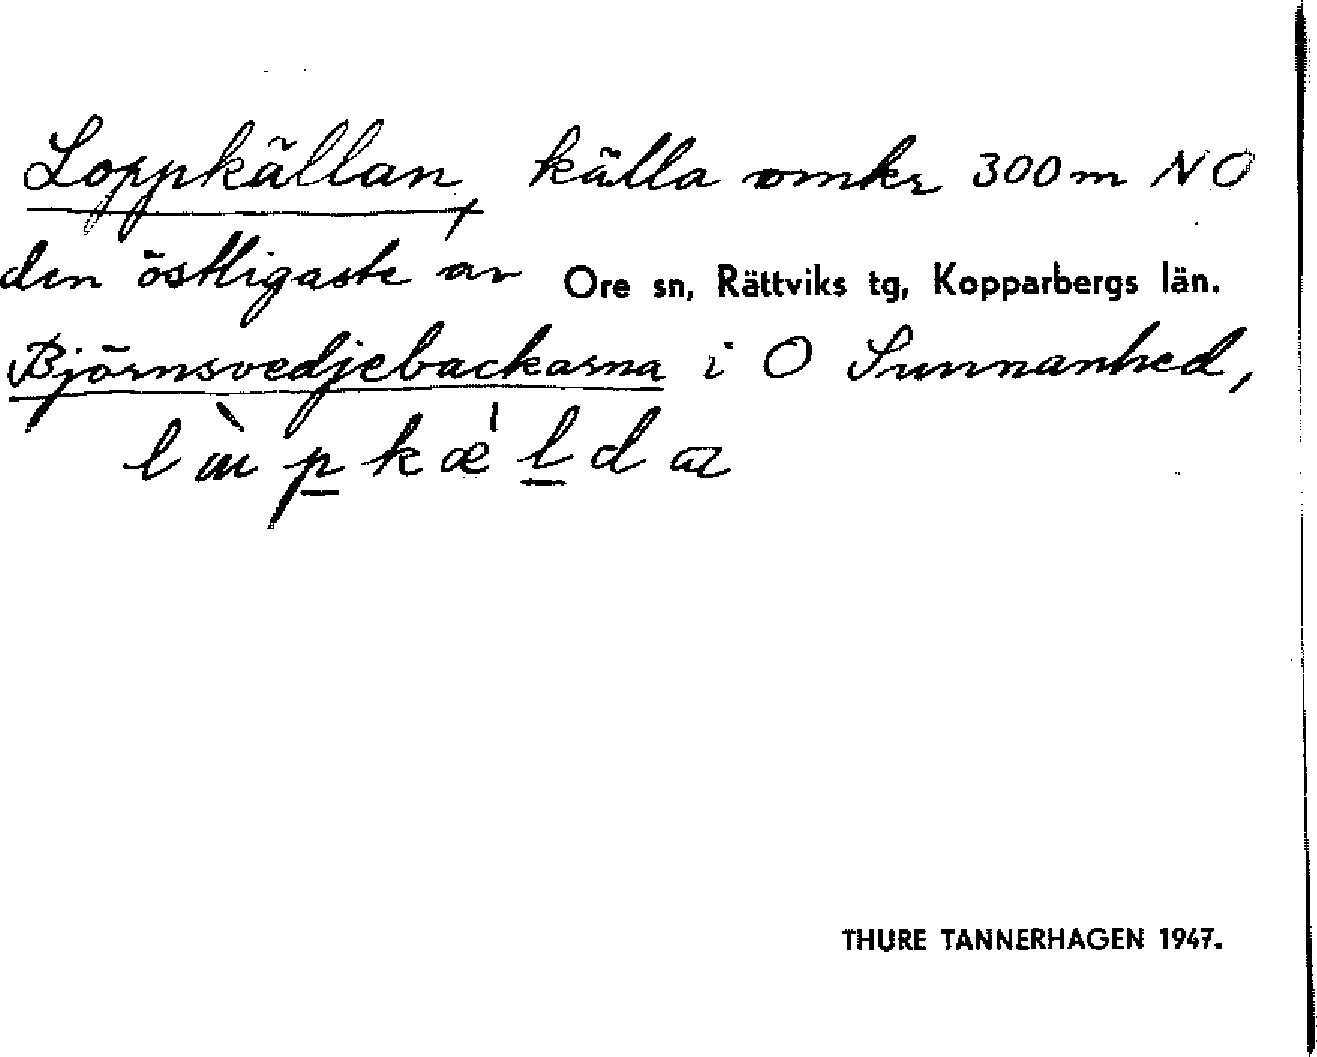 Loppkällan, källa omkr 300 m NO
den östligaste av Ore sn, Rättviks tg, Kopparbergs län.
Björnsvedjebackarna i O Sunnanhed,
THURE TANNERHAGEN 1947.